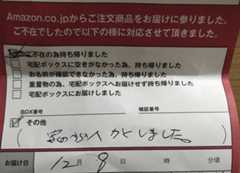 Amazon.co.jpからご注文商品をお届けに参りました。
ご不在でしたので以下の様に対応させて頂きました。
ご不在の為持ち帰りました
宅配ボックスに空きがなかった為、持ち帰りました
お名前が確認できなかった為、持ち帰りました
重量物の為、宅配ボックスへお届けせず持ち帰りました
宅配ボックスにお届けしました
BOX番号 暗証番号
その他
しました。
お届け日 12月9日 時 分頃